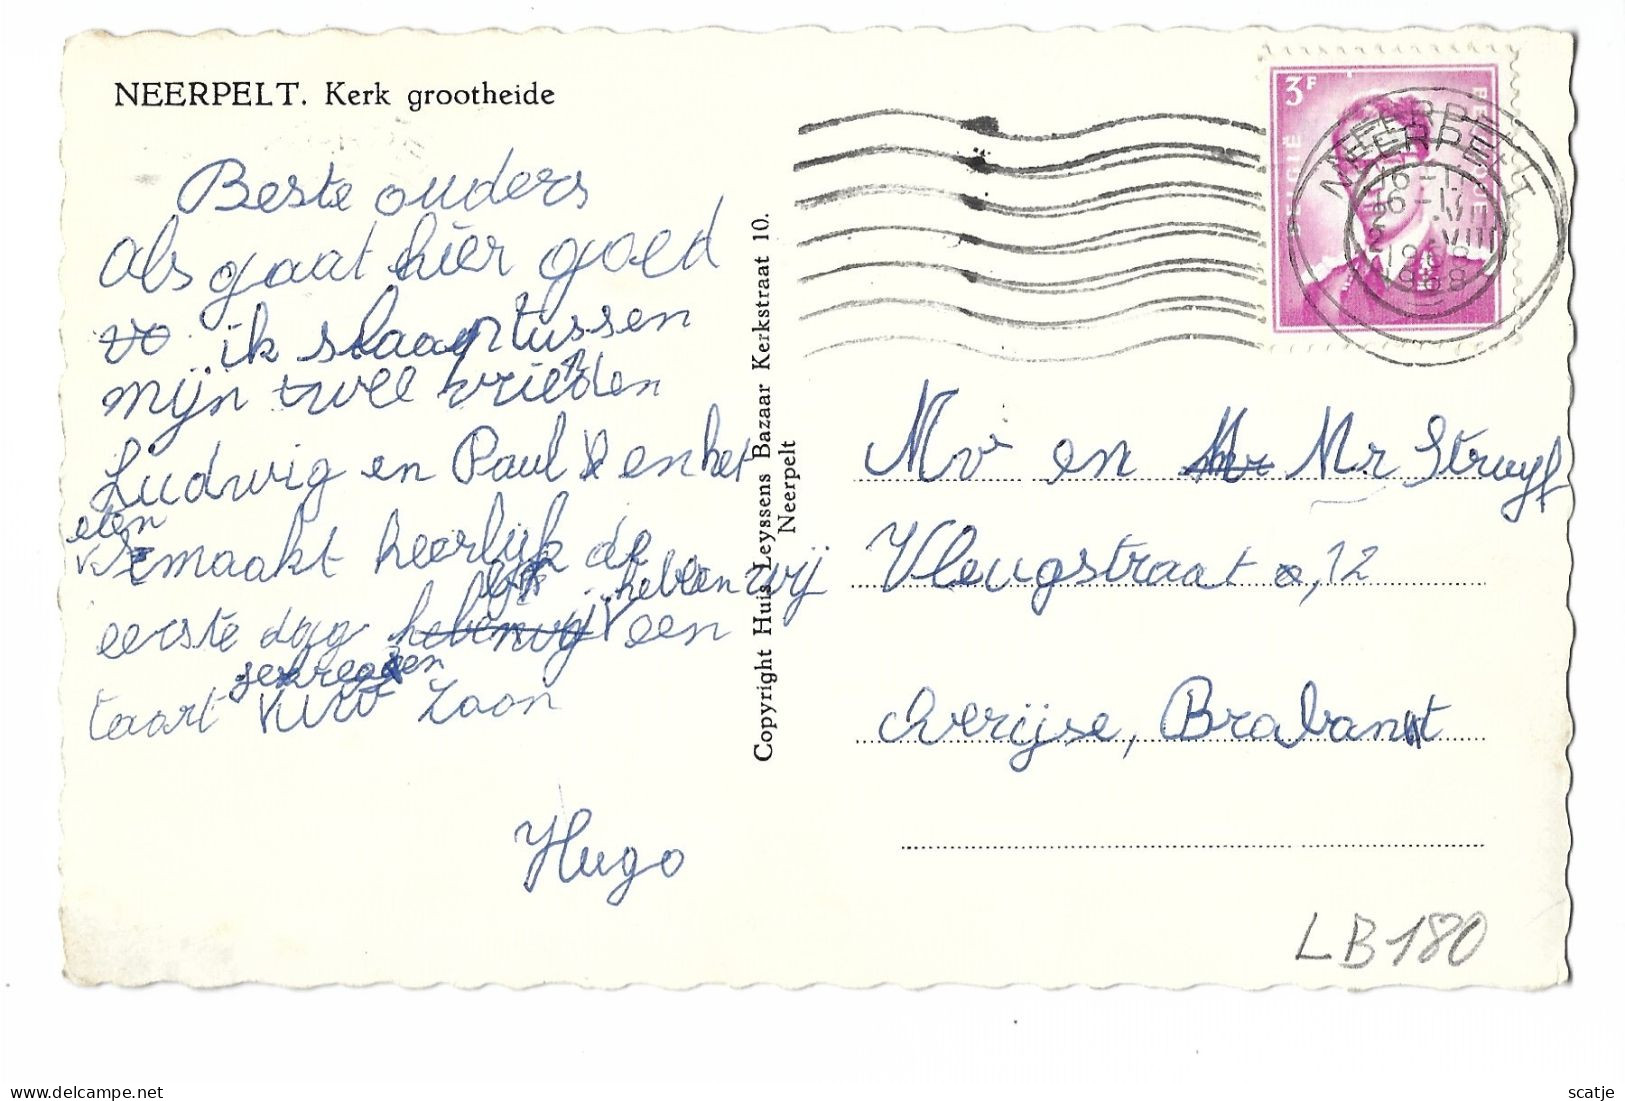 NEERPELT. Kerk grootheide
Beste ouders
als gaat hier goed
ik slaap tussen
mijn twee vrienden
Ludwig en Paul en het
eten
smaakt heerlijk de
hebben wij
eerste dag een
gekregen
taart uw zoon
Hugo
Copyright Huis Leyssens Bazaar Kerkstraat 10.
Neerpelt
3F
BELGIË BELGIQUE
NEERPELT
16-17
VIII
1968
Mv en Mr Struyf
Vleugstraat 12
Overijse, Brabant
LB180
scatje